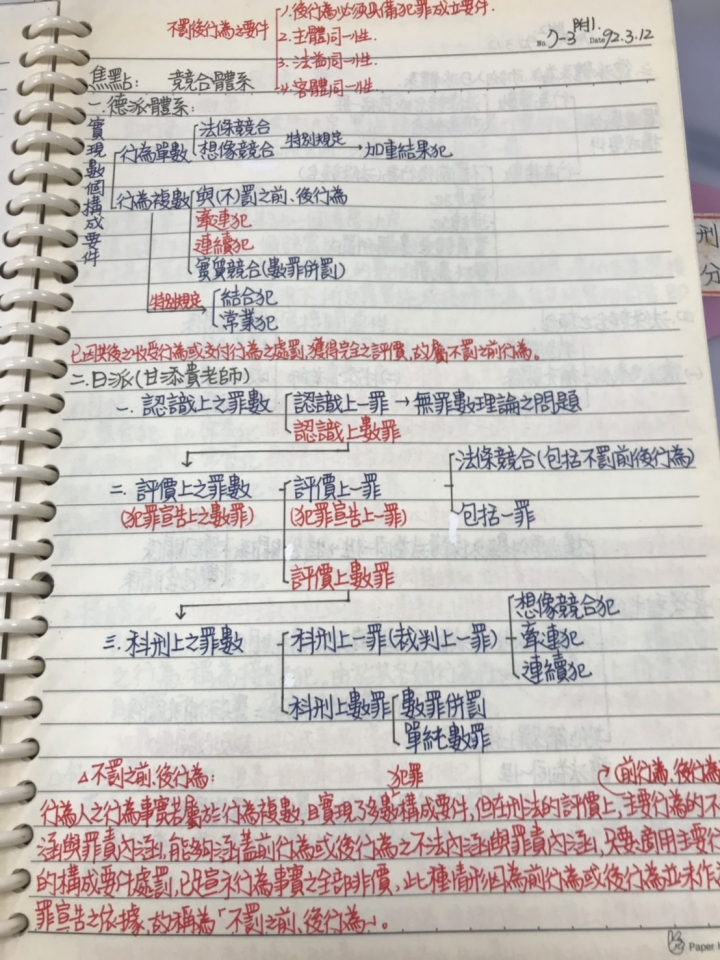 不罰後行為之要件 1.後行為必須具備犯罪成立要件.
2.主體同一性.
3.法益同一性.
4.客體同一性
No. 7-3 附1. Date 92.3.12
焦點: 競合體系
一.德派體系:
實現數個構成要件
行為單數 法條競合
想像競合 特別規定 → 加重結果犯
行為複數 與(不)罰之前、後行為
牽連犯
連續犯
實質競合(數罪併罰)
特別規定 結合犯
常業犯
已因其後之收受行為或交付行為之處罰,獲得完全之評價,故屬不罰之前行為。
二.日派(甘添貴老師)
一、認識上之罪數 認識上一罪 → 無罪數理論之問題
認識上數罪
二、評價上之罪數 評價上一罪 法條競合(包括不罰前後行為)
(犯罪宣告上之數罪) (犯罪宣告上一罪) 包括一罪
評價上數罪
三、科刑上之罪數 科刑上一罪(裁判上一罪) 想像競合犯
牽連犯
連續犯
科刑上數罪 數罪併罰
單純數罪
△不罰之前、後行為: 犯罪 (前行為、後行為
行為人之行為事實若屬於行為複數,且實現了多數構成要件,但在刑法的評價上,主要行為的不
涵與罪責內涵,能夠涵蓋前行為或後行為之不法內涵與罪責內涵,只要適用主要行
的構成要件處罰,已足宣示行為事實之全部非價,此種情形因為前行為或後行為並未作
罪宣告之依據,故稱為「不罰之前、後行為」。
刑
分
Paper